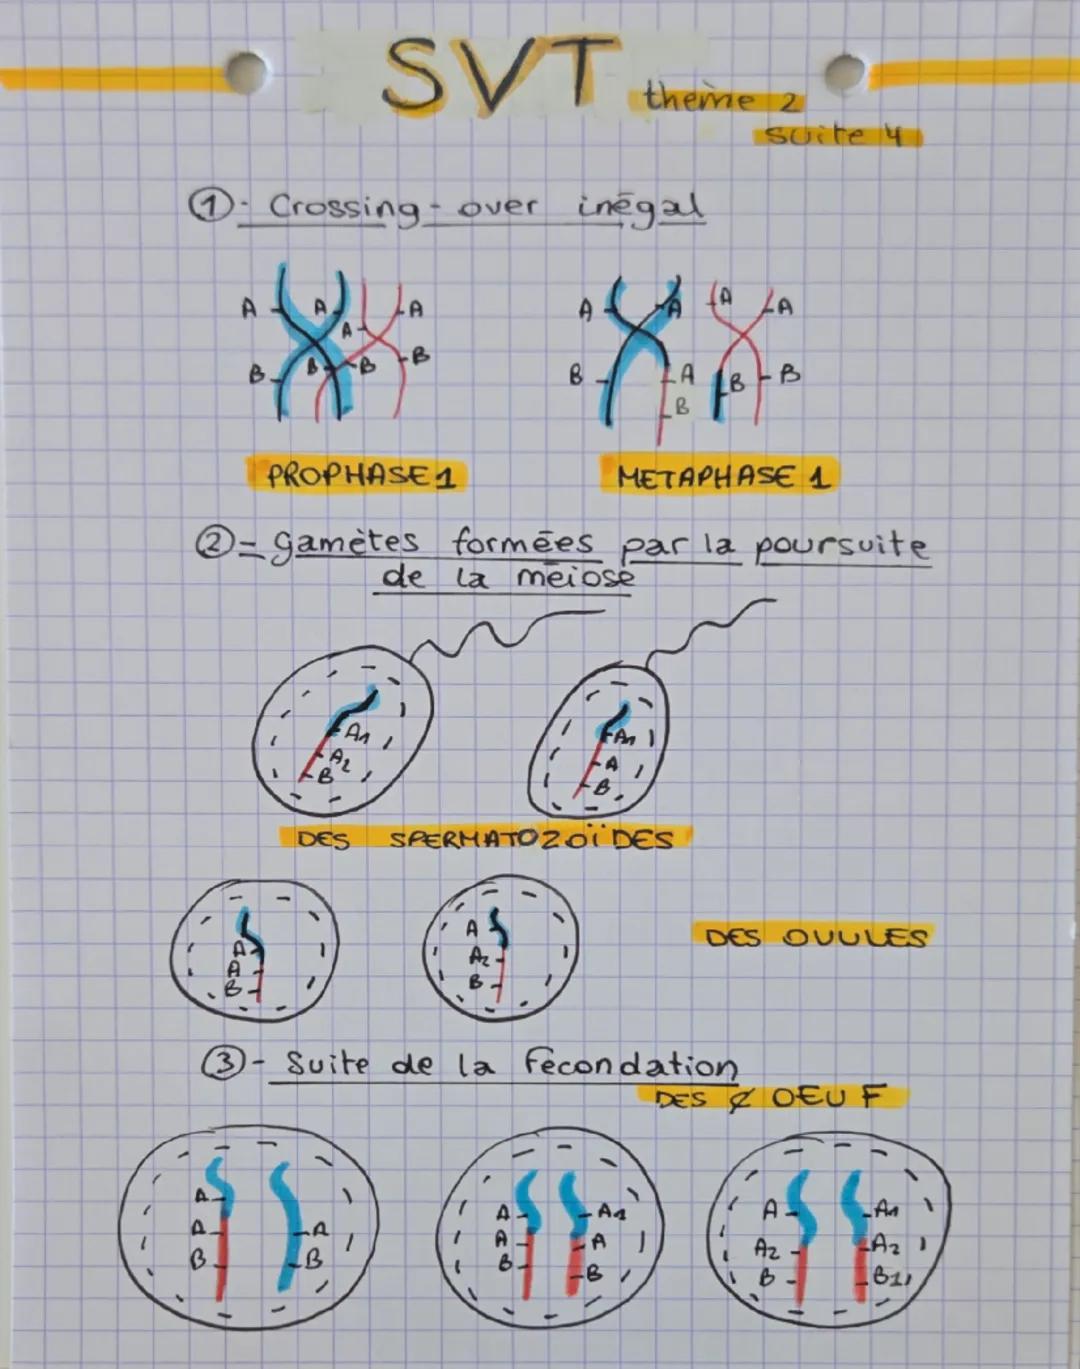 SVT
thème 2
suite 4
①- Crossing-over inégal
A A A A
B B B B
A A A A
B A B B
B
PROPHASE 1
METAPHASE 1
②- gamètes formées par la poursuite
de la méiose
A1
A2
B
A1
A
B
DES SPERMATOZOÏDES
A
A
B
A
A2
B
DES OVULES
③- Suite de la fécondation
DES ¢ OEUF
A
A
B
A
B
A
A
B
A1
A
B
A
A2
B
A1
A2
B1